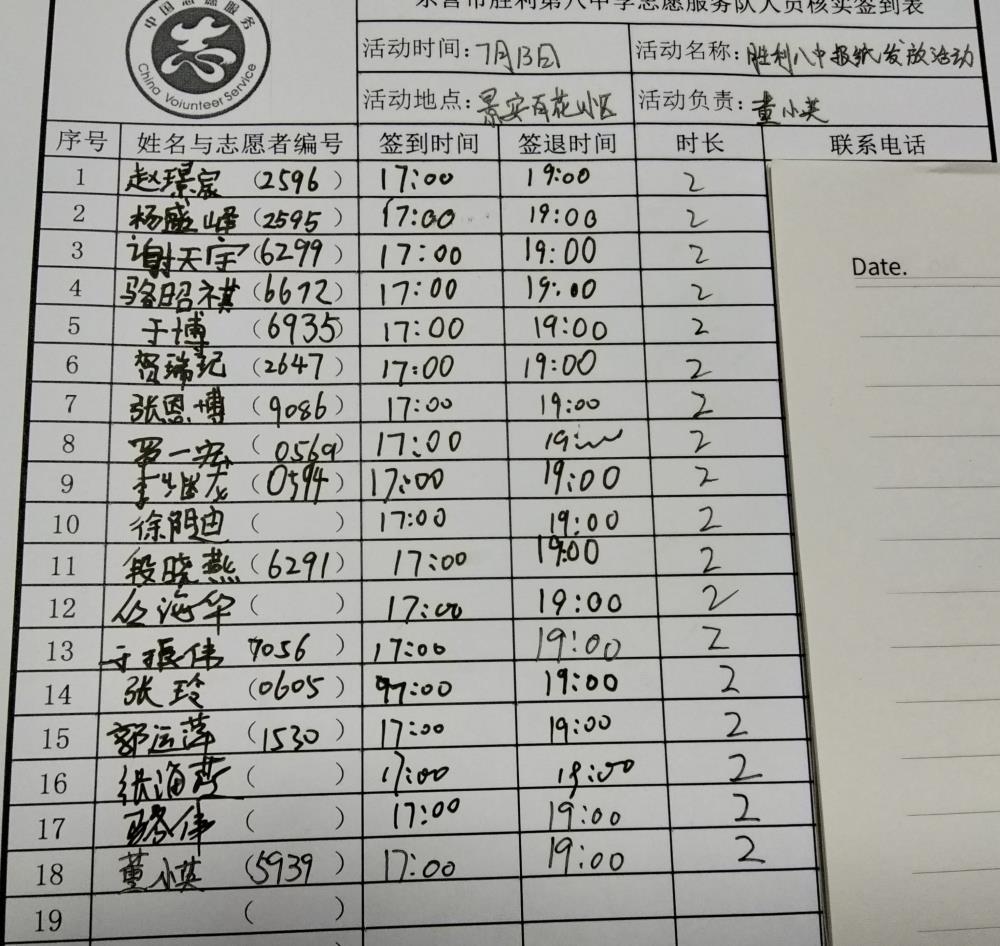 东营市胜利第八中学志愿服务队人员核实签到表
中国志愿服务
志
China Volunteer Service
活动时间：7月13日 活动名称：胜利八中报纸发放活动
活动地点：景安百花小区 活动负责：董小英
序号 姓名与志愿者编号 签到时间 签退时间 时长 联系电话
1 赵璟宸 （2596） 17:00 19:00 2
2 杨盛峰 （2595） 17:00 19:00 2
3 谢天宇 （6299） 17:00 19:00 2
Date.
4 骆昭祺 （6672） 17:00 19:00 2
5 于博 （6935） 17:00 19:00 2
6 贺瑞 （2647） 17:00 19:00 2
7 张恩博 （9086） 17:00 19:00 2
8 一宏 （0569 17:00 19: 2
9 李 （0594） 17:00 19:00 2
10 徐 （ ） 17:00 19:00 2
11 段晓燕 （6291） 17:00 19:00 2
12 海华 （ ） 17:00 19:00 2
13 于振伟 7056 ） 17:00 19:00 2
14 张玲 （0605） 17:00 19:00 2
15 郭运萍 （1530） 17:00 19:00 2
16 张海燕 （ ） 17:00 19:00 2
17 骆伟 （ ） 17:00 19:00 2
18 董小英 （5939） 17:00 19:00 2
19 （ ）